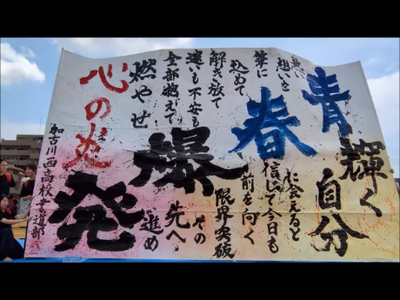 青春
熱い
想いを
筆に
込めて
解き放て
迷いも不安も
燃やせ
心の炎
輝く
自分
に会えると
信じて今日も
前を向く
限界突破
その
先へ
進め
爆発
加古川西高校書道部